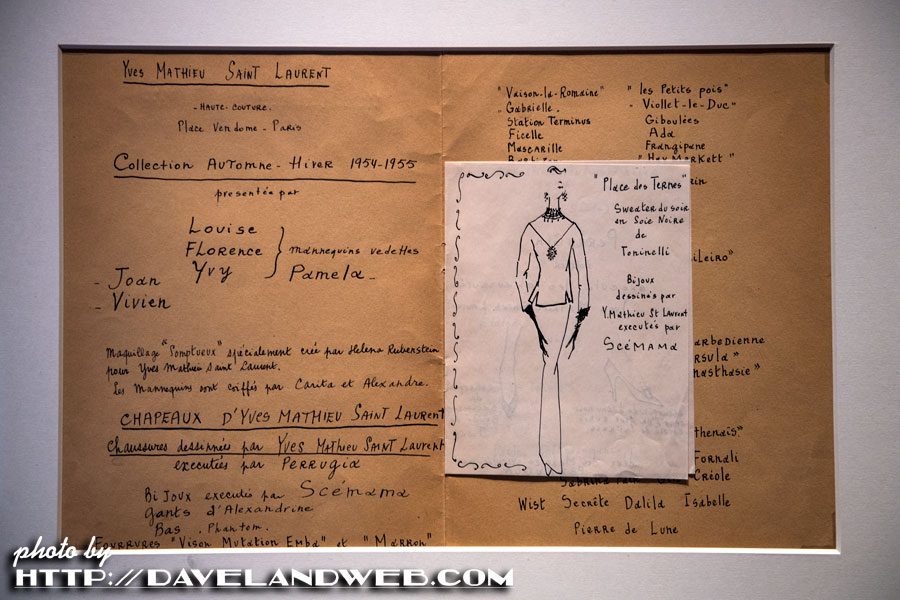 Yves Mathieu Saint Laurent
- Haute-Couture.
Place Vendome - Paris
Collection Automne - Hiver 1954-1955
presentée par
Louise
Florence
Yvy
mannequins vedettes
Pamela -
- Joan
- Vivien
Maquillage "Somptueux" spécialement crée par Helena Rubenstein
pour Yves Mathieu Saint Laurent.
Les Mannequins sont coiffés par Carita et Alexandre.
CHAPEAUX D'YVES MATHIEU SAINT LAURENT
Chaussures dessinnées par YVES MATHIEU SAINT LAURENT
executées par PERRUGIA
Bijoux executés par Scémama
Gants d'Alexandrine
Bas. Phantom.
Fourrures "Vison Mutation Emba" et "Marron"
"Vaison-la-Romaine"
"Gabrielle.
Station Terminus
Ficelle
Mascarille
"les Petits pois"
- Viollet-le-Duc"
Giboulées
Ada
Frangipane
"Hay Markett"
"Place des Ternes"
Sweater du soir
en Soie Noire
de
Toninelli
Bijoux
dessinés par
Y. Mathieu St Laurent
executés par
Scémama
Créole
Wist Secrète Dalila Isabelle
Pierre de Lune
photo by
HTTP://DAVELANDWEB.COM